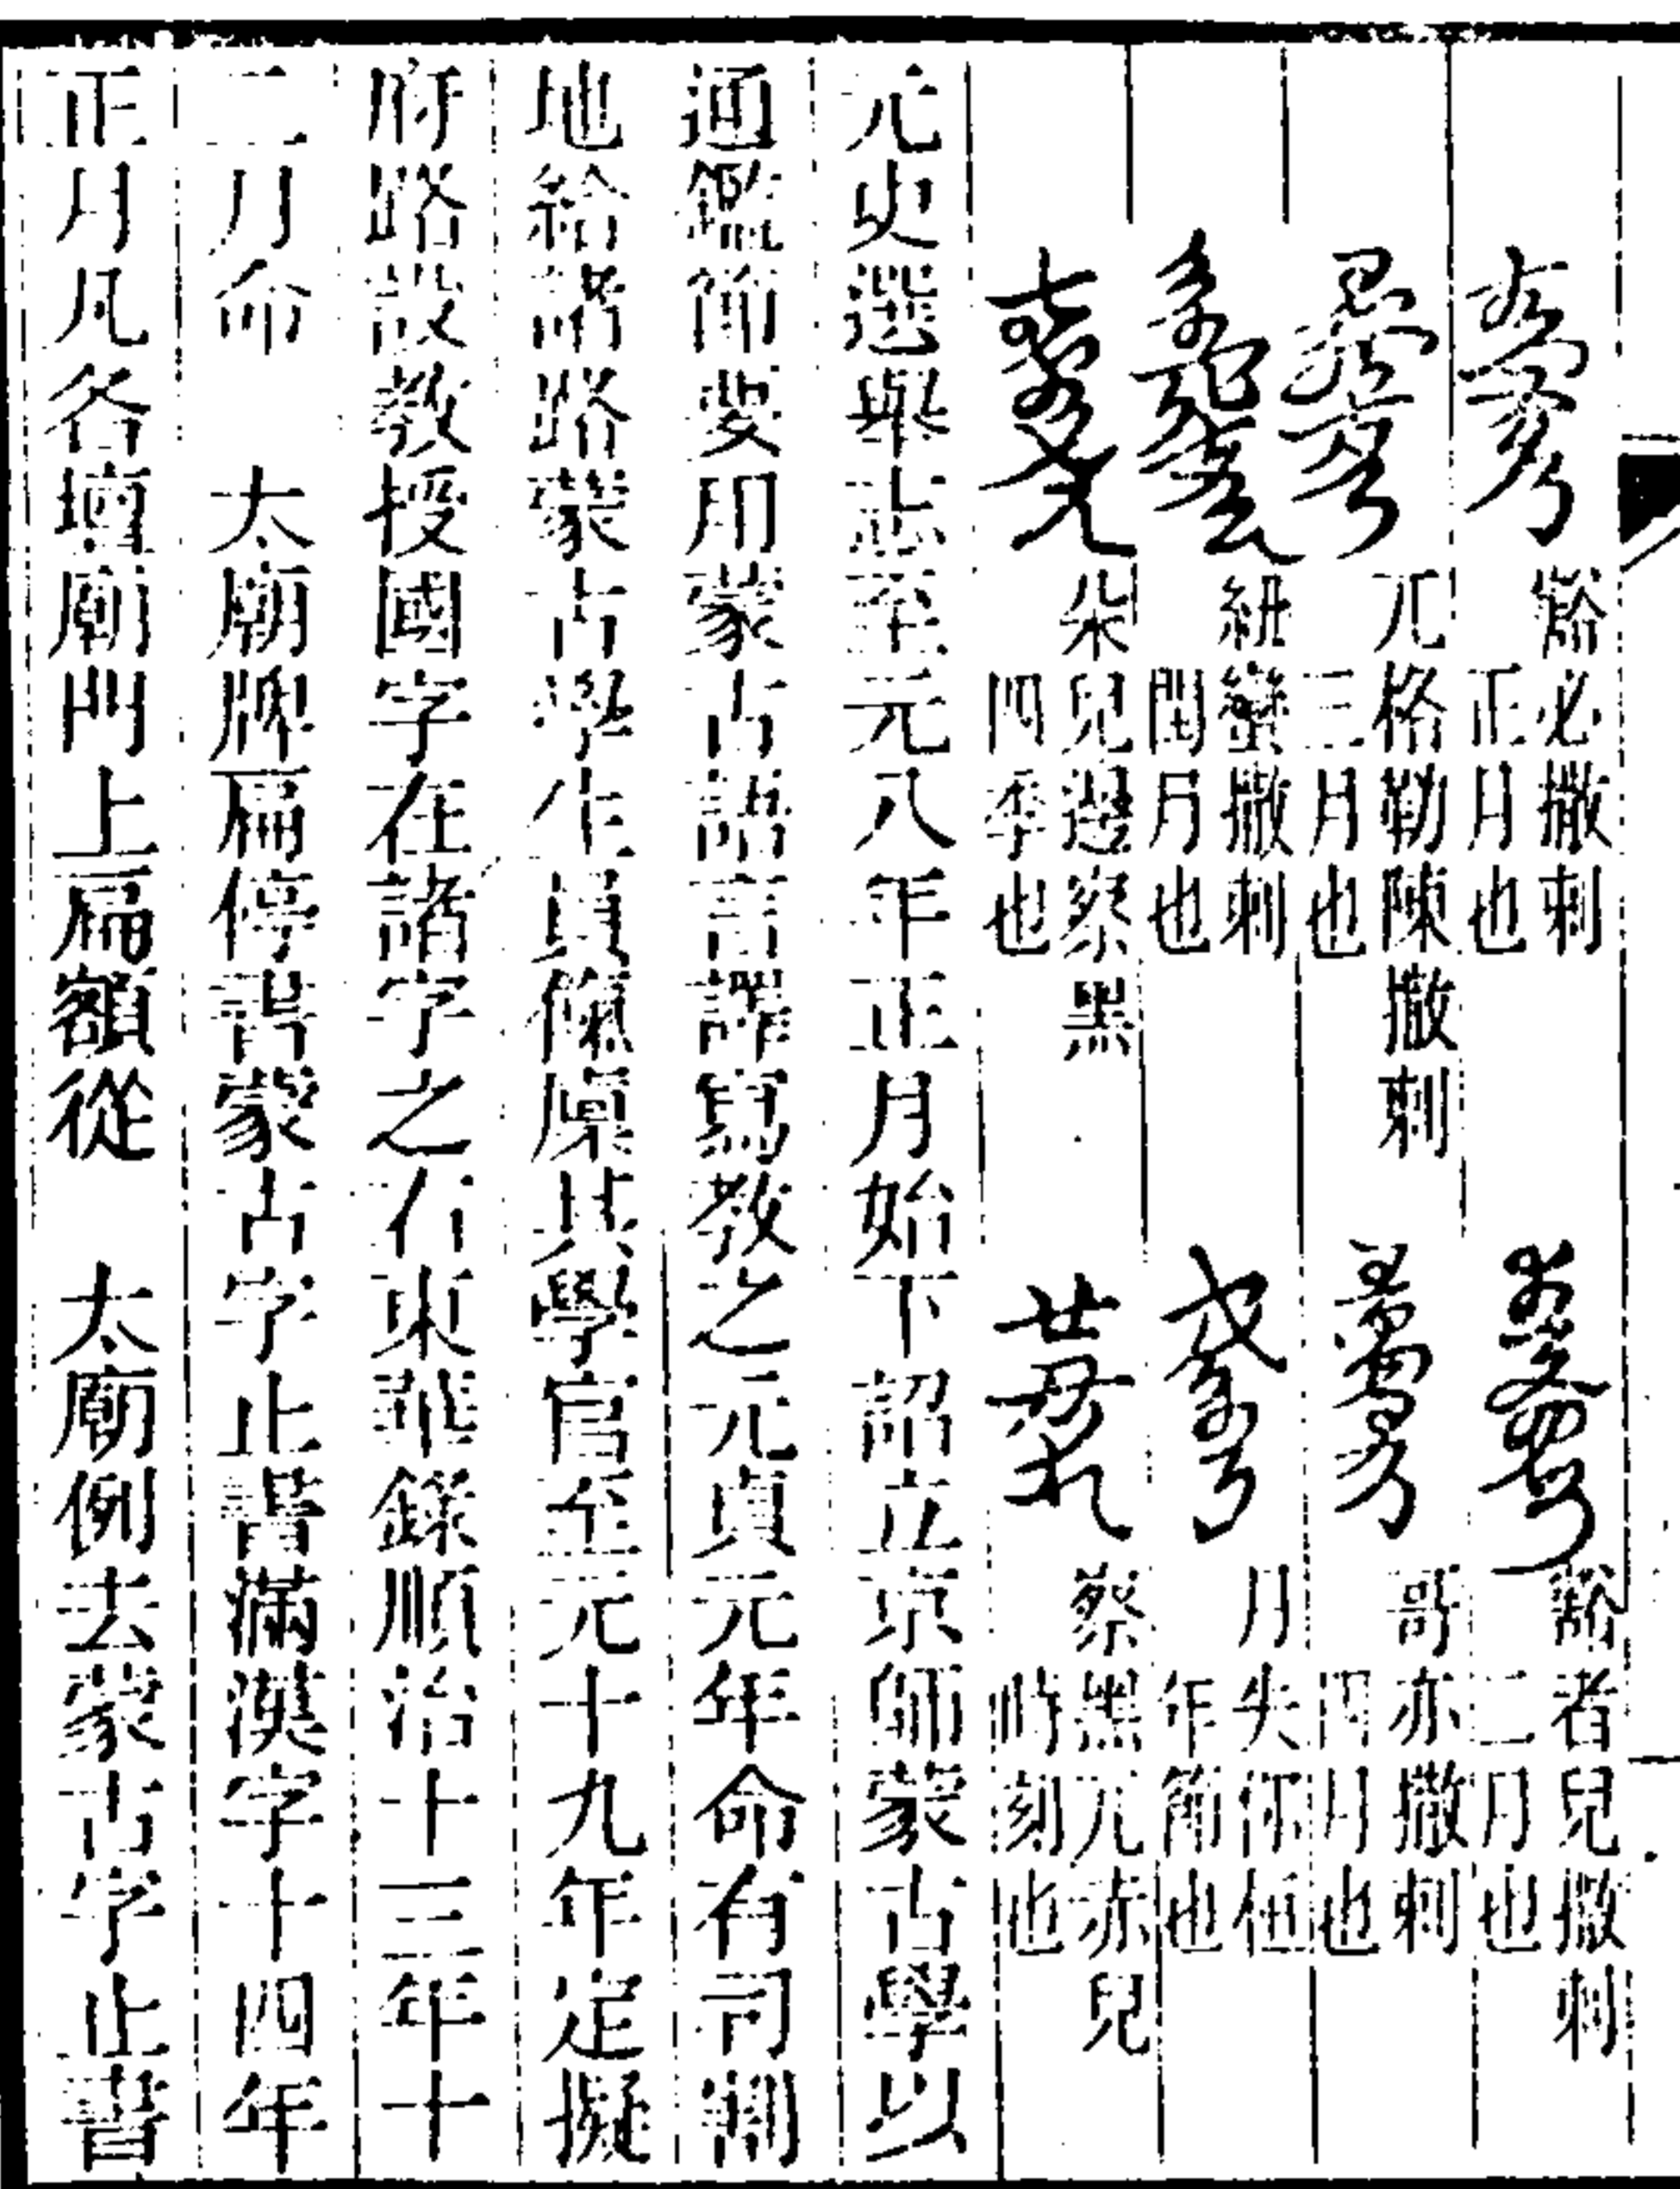 豁必撒剌 正月也 豁者兒撒剌 二月也
兀格勒陳撒剌 三月也 哥亦撒剌 四月也
紐蠻撒剌 閏月也 月失你伍 年節也
朵兒邊察黑 四季也 察黑兀赤兒 時刻也
元史選舉志至元八年正月始下詔立京師蒙古學以
通鑑節要用蒙古語言譯寫教之元貞元年命有司割
地給諸路蒙古學生員餼廩其學官至元十九年定擬
府路設教授國字在諸字之右東華錄順治十三年十
二月命　太廟牌扁停書蒙古字止書滿漢字十四年
正月凡各壇廟門上扁額從　太廟例去蒙古字止書